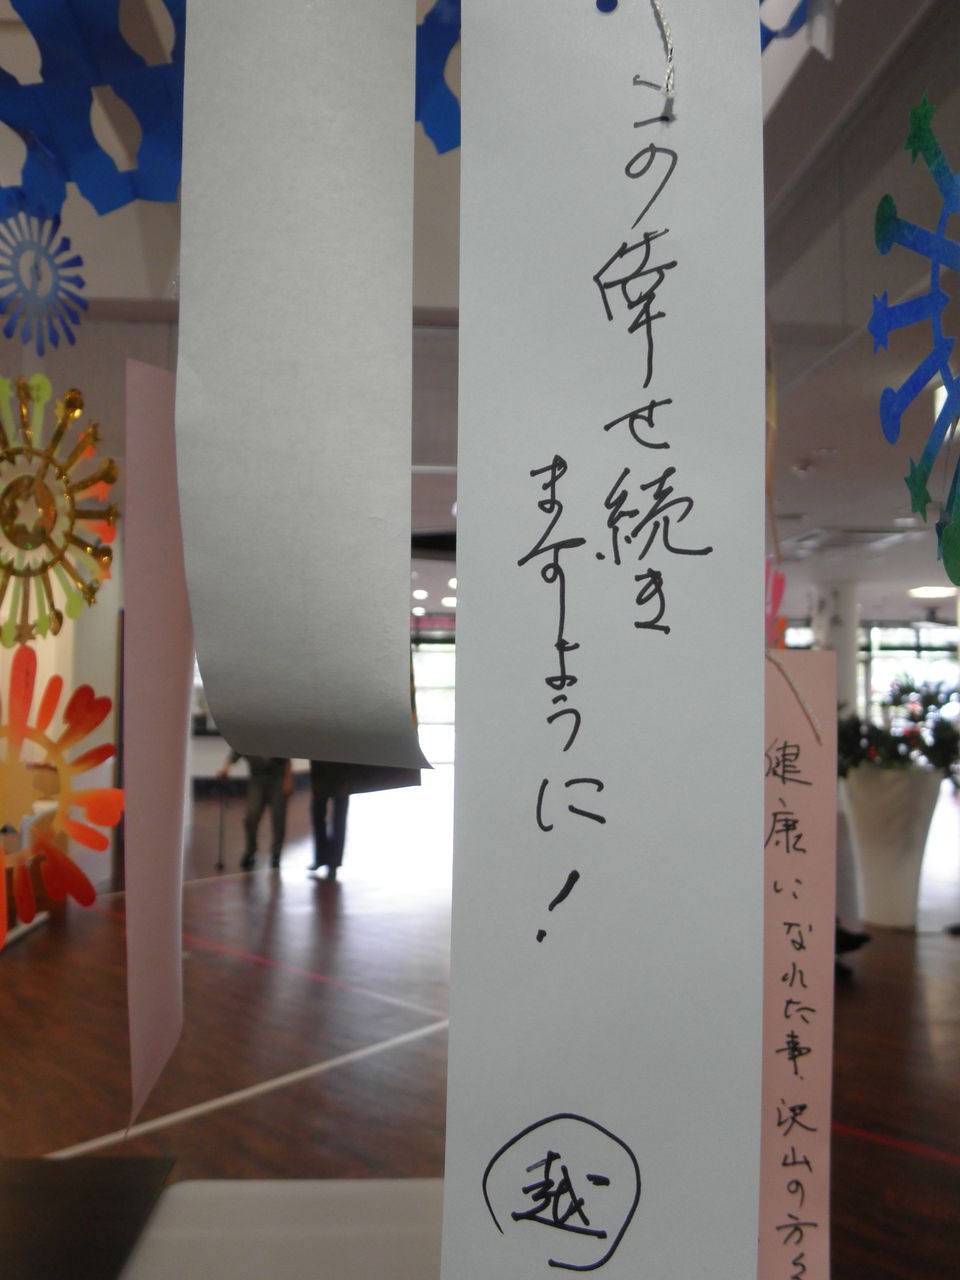 この倖せ続き
ますように！
越
健康になれた事、沢山の方々